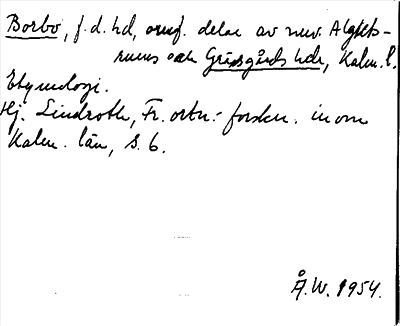 Borbo, f.d. hd, omf. delar av nuv. Alguts-
rums och Gräsgårds hdr, Kalm. l.
Etymologi.
Hj. Lindroth, Fr. ortn.-forskn. inom
Kalm. län, s. 6.
Å.W. 1954.